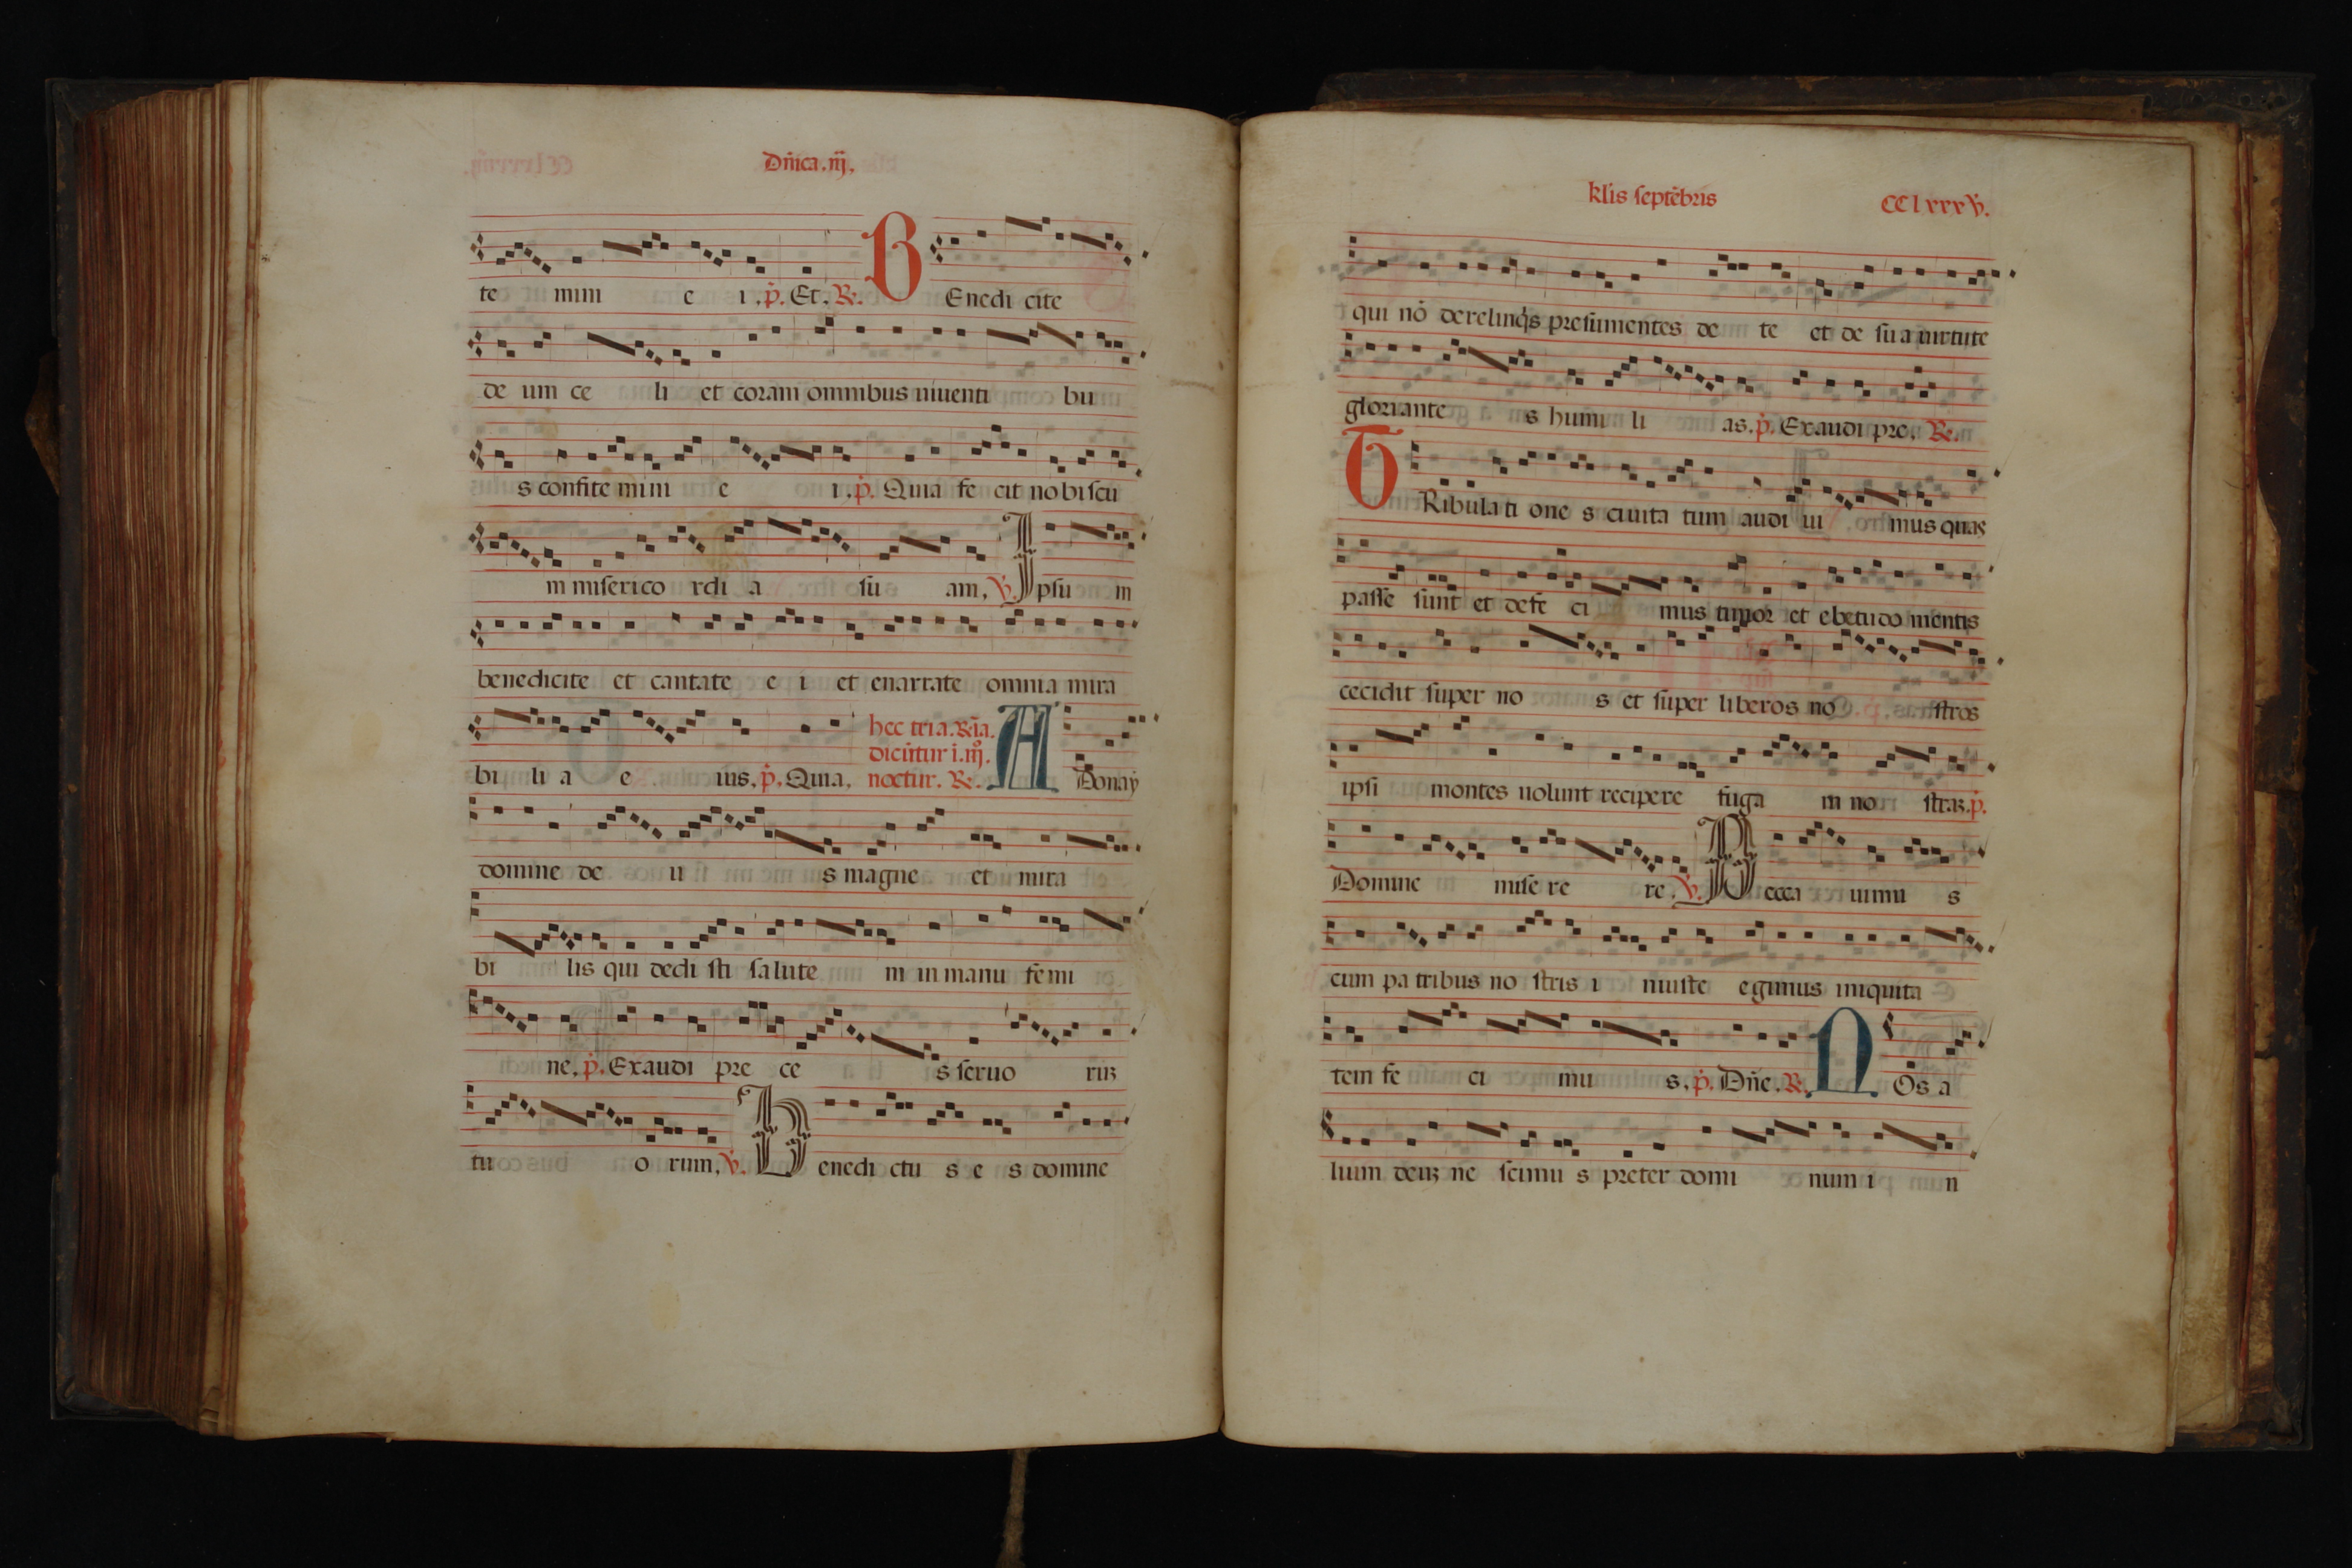 Dñica.iij.
te mini e i.p.Et.R.BEnedi cite
de um ce li et coram omnibus uiuenti bu
s confite mini e i.p.Quia fe cit nobiscū
m miserico rdi a su am,V.Ipsu m
benedicite et cantate e i et enarrate omnia mira
bi li a e ius.p.Quia,
hec tria.Ria.
dicūtur i.iijº.
noctur.R.
ADonaÿ
domine de u s magne et mira
bi lis qui dedi sti salute m in manu femi
ne,p.Exaudi pre ce s seruo rūꝫ
tu o rum,V.Benedi ctu s e s domine
klis septēbris
CClxxxv.
qui nō derelinq̄s presumentes de te et de sua uirtute
gloriante s humi li as.p.Exaudi pre,R.
TRibulati one s ciuita tum audi ui mus quas
passe sunt et defe ci mus timor et ebetudo mentis
cecidit super no s et super liberos no stros
ipsi montes nolunt recipere fuga m no straꝫ.p.
Domine mise re re.V.Pecca uimu s
cum pa tribus no stris i niuste egimus iniquita
tem fe ci mu s,p.Dñe.R.NOs a
lium deuꝫ ne scimu s preter domi num i n